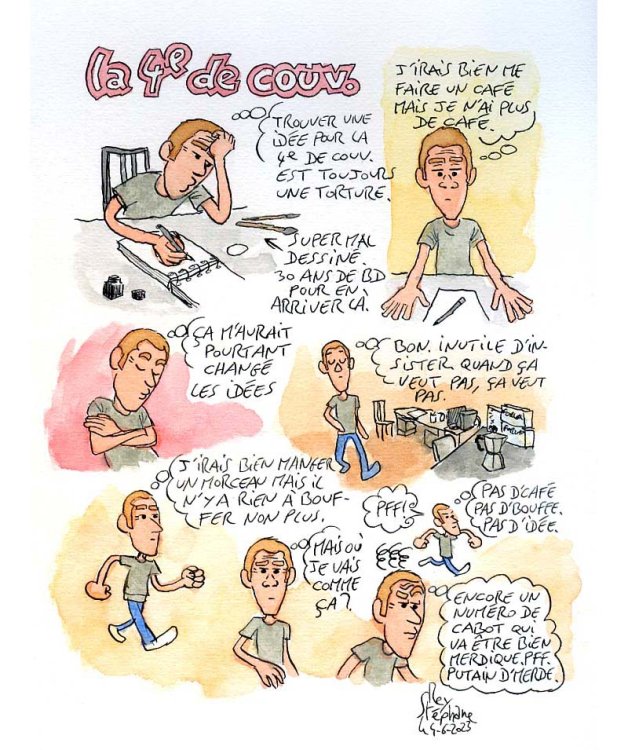 la 4e de couv.
TROUVER UNE
IDÉE POUR LA
4e DE COUV.
EST TOUJOURS
UNE TORTURE.
SUPER MAL
DESSINÉ.
30 ANS DE BD
POUR EN
ARRIVER LÀ.
J'IRAIS BIEN ME
FAIRE UN CAFÉ
MAIS JE N'AI PLUS
DE CAFÉ.
ÇA M'AURAIT
POURTANT
CHANGÉ
LES IDÉES
BON. INUTILE D'IN-
SISTER. QUAND ÇA
VEUT PAS, ÇA VEUT
PAS.
J'IRAIS BIEN MANGER
UN MORCEAU MAIS IL
N'Y A RIEN À BOUF-
FER NON PLUS.
PFF!
PAS D'CAFÉ
PAS D'BOUFFE.
PAS D'IDÉE.
MAIS OÙ
JE VAIS
COMME
ÇA?
ENCORE UN
NUMÉRO DE
CABOT QUI
VA ÊTRE BIEN
MERDIQUE. PFF.
PUTAIN D'MERDE.
Rey
Stéphane